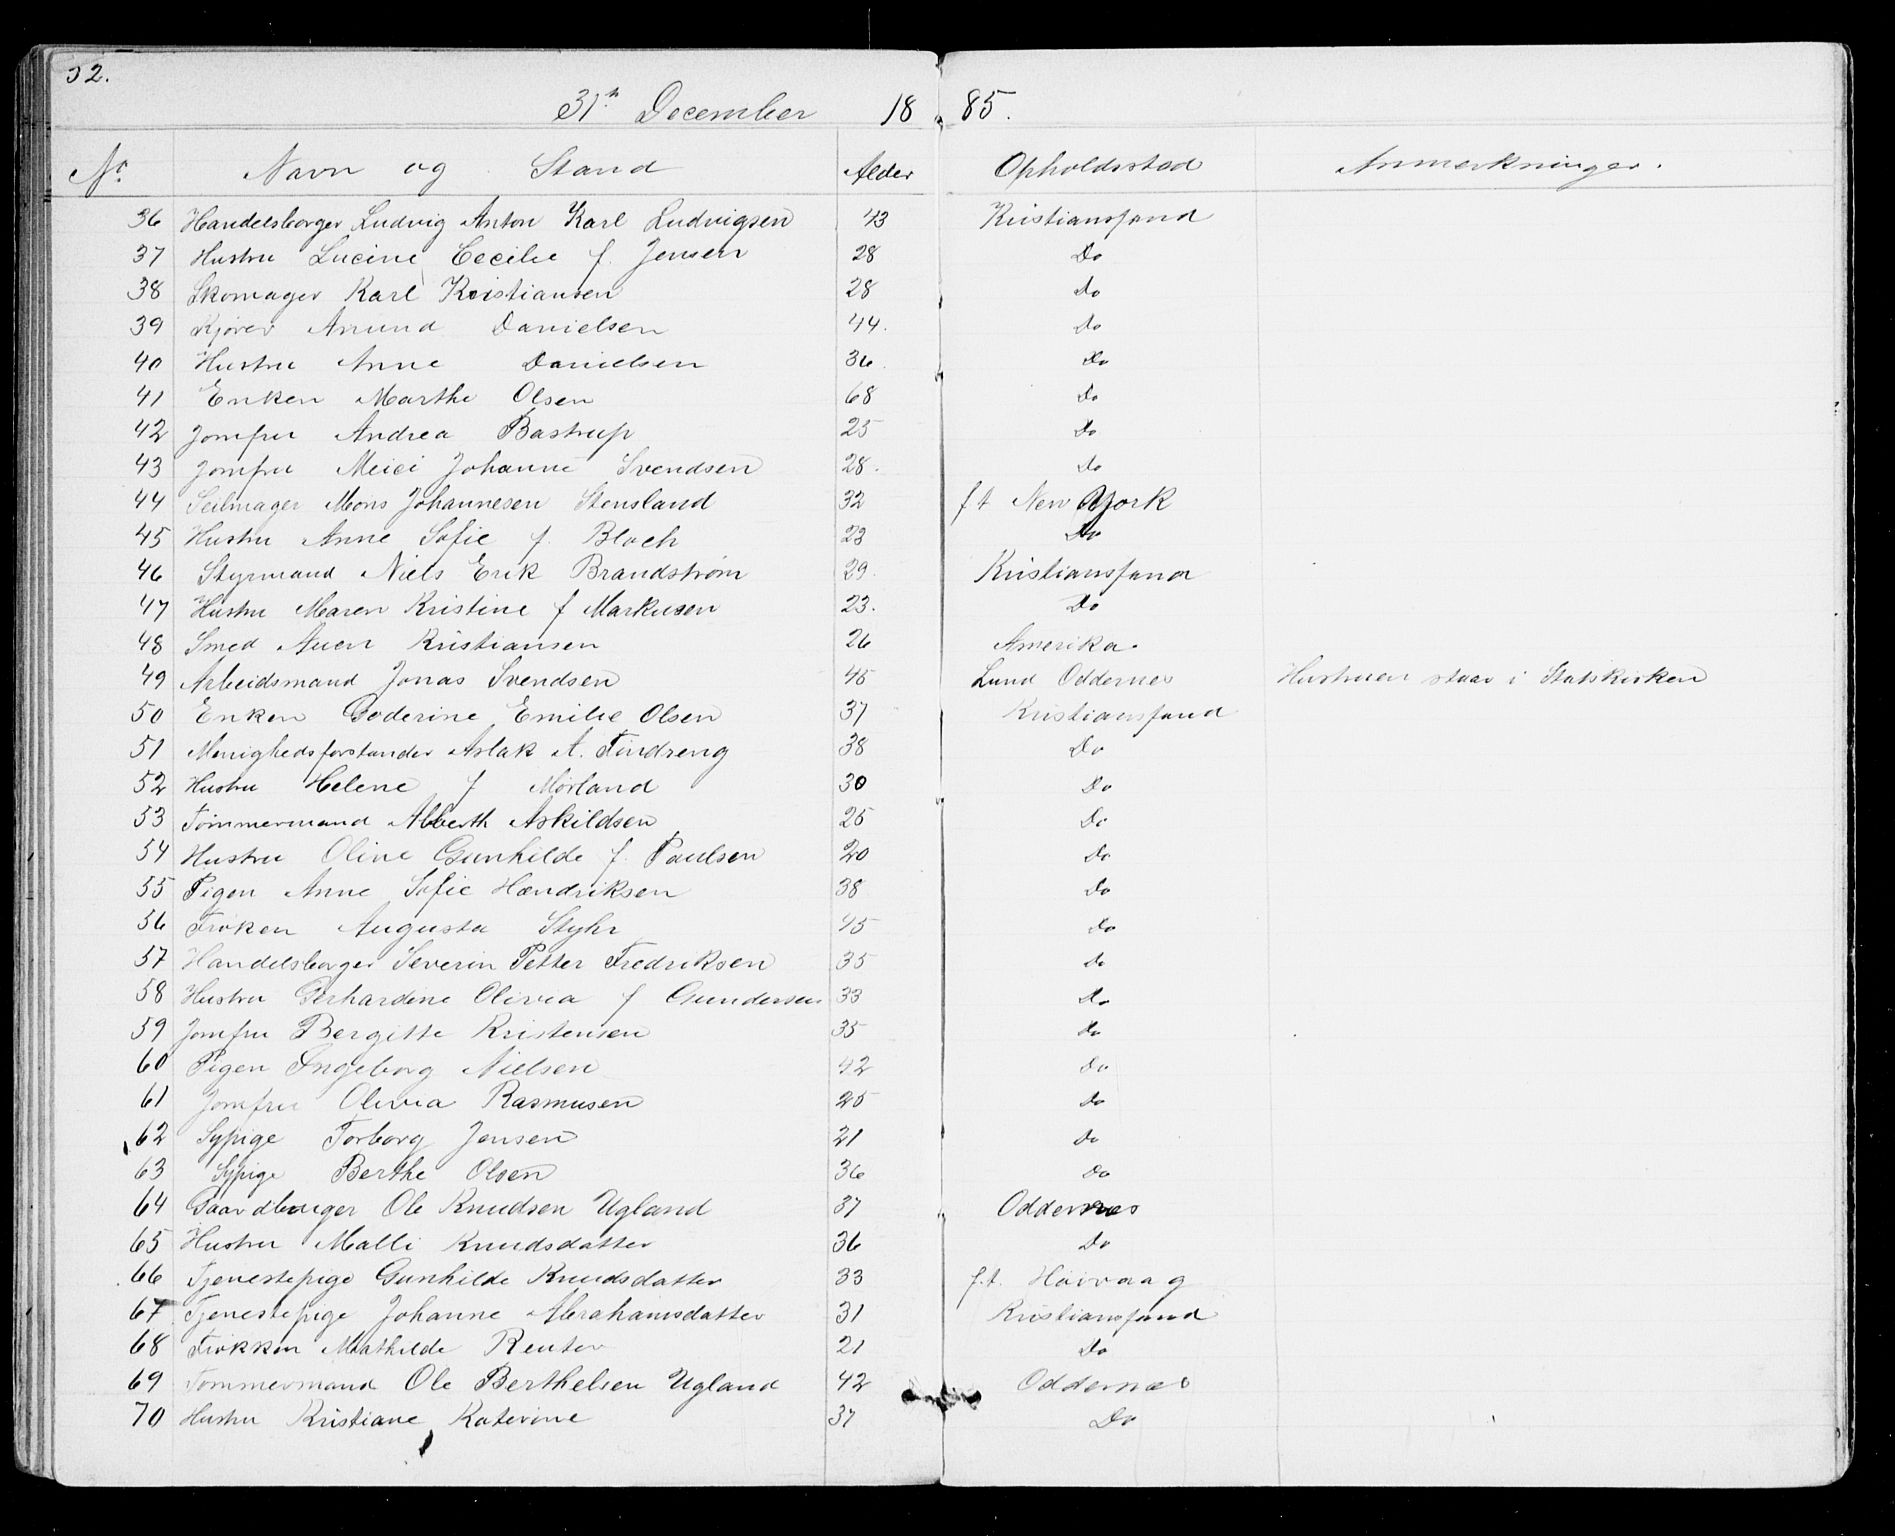 32.
31te December 1885.
No Navn og Stand Alder Opholdssted Anmerkninger.
36 Handelsborger Ludvig Anton Karl Ludvigsen 43 Kristianssand
37 Hustru Lucine Cecilie f. Jensen 28 Do
38 Skomager Karl Kristiansen 28 Do
39 Kjører Anund Danielsen 44. Do
40 Hustru Anne Danielsen 36. Do
41 Enken Marthe Olsen 68 Do
42 Jomfru Andrea Bastrup 25 Do
43 Jomfru Meici Johanne Svendsen 28. Do
44 Seilmager Mons Johannesen Stensland 32 f.t New York
45 Hustru Anne Sofie f. Bloch 23 Do
46 Styrmand Niels Erik Brandstrøm 29. Kristianssand
47 Hustru Maren Kristine f Markusen 23. Do
48 Smed Auen Kristiansen 26 Amerika.
49 Arbeidsmand Jonas Svendsen 45 Lund Oddernes Hustruen staar i Statskirken
50 Enken Goderine Emilie Olsen 37 Kristianssand
51 Menighedsforstander Aslak A. Tindreng 38 Do
52 Hustru Helene f Mørland 30 Do
53 Tømmermand Alberth Askildsen 25 Do
54 Hustru Oline Gunhilde f. Paulsen 20 Do
55 Pigen Anne Sofie Hendriksen 38 Do
56 Frøken Augusta Styhr 45 Do
57 Handelsborger Severin Petter Fredriksen 35 Do
58 Hustru Gerhardine Olivia f Gundersen 33 Do
59 Jomfru Bergitte Kristensen 35 Do
60 Pigen Ingeborg Nielsen 42 Do
61 Jomfru Olivia Rasmusen 25 Do
62 Sypige Torborg Jensen 21 Do
63 Sypige Berthe Olsen 36 Do
64 Gaardbruger Ole Knudsen Ugland 37 Oddernes
65 Hustru Malli Knudsdatter 36 Do
66 Tjenestepige Gunhilde Knudsdatter 33 f.t. Høivaag
67 Tjenestepige Johanne Abrahamsdatter 31 Kristianssand
68 Frøkken Mathilde Reuter 21 Do
69 Tømmermand Ole Berthelsen Ugland 42 Oddernes
70 Hustru Kristiane Katerine 37 Do